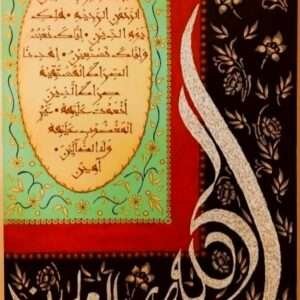 الرحمن الرحيم ۝ ملك
يوم الدين ۝ إياك نعبد
وإياك نستعين ۝ اهدنا
الصراط المستقيم ۝
صراط الذين
أنعمت عليهم ۝ غير
المغضوب عليهم
ولا الضالين ۝
آمين